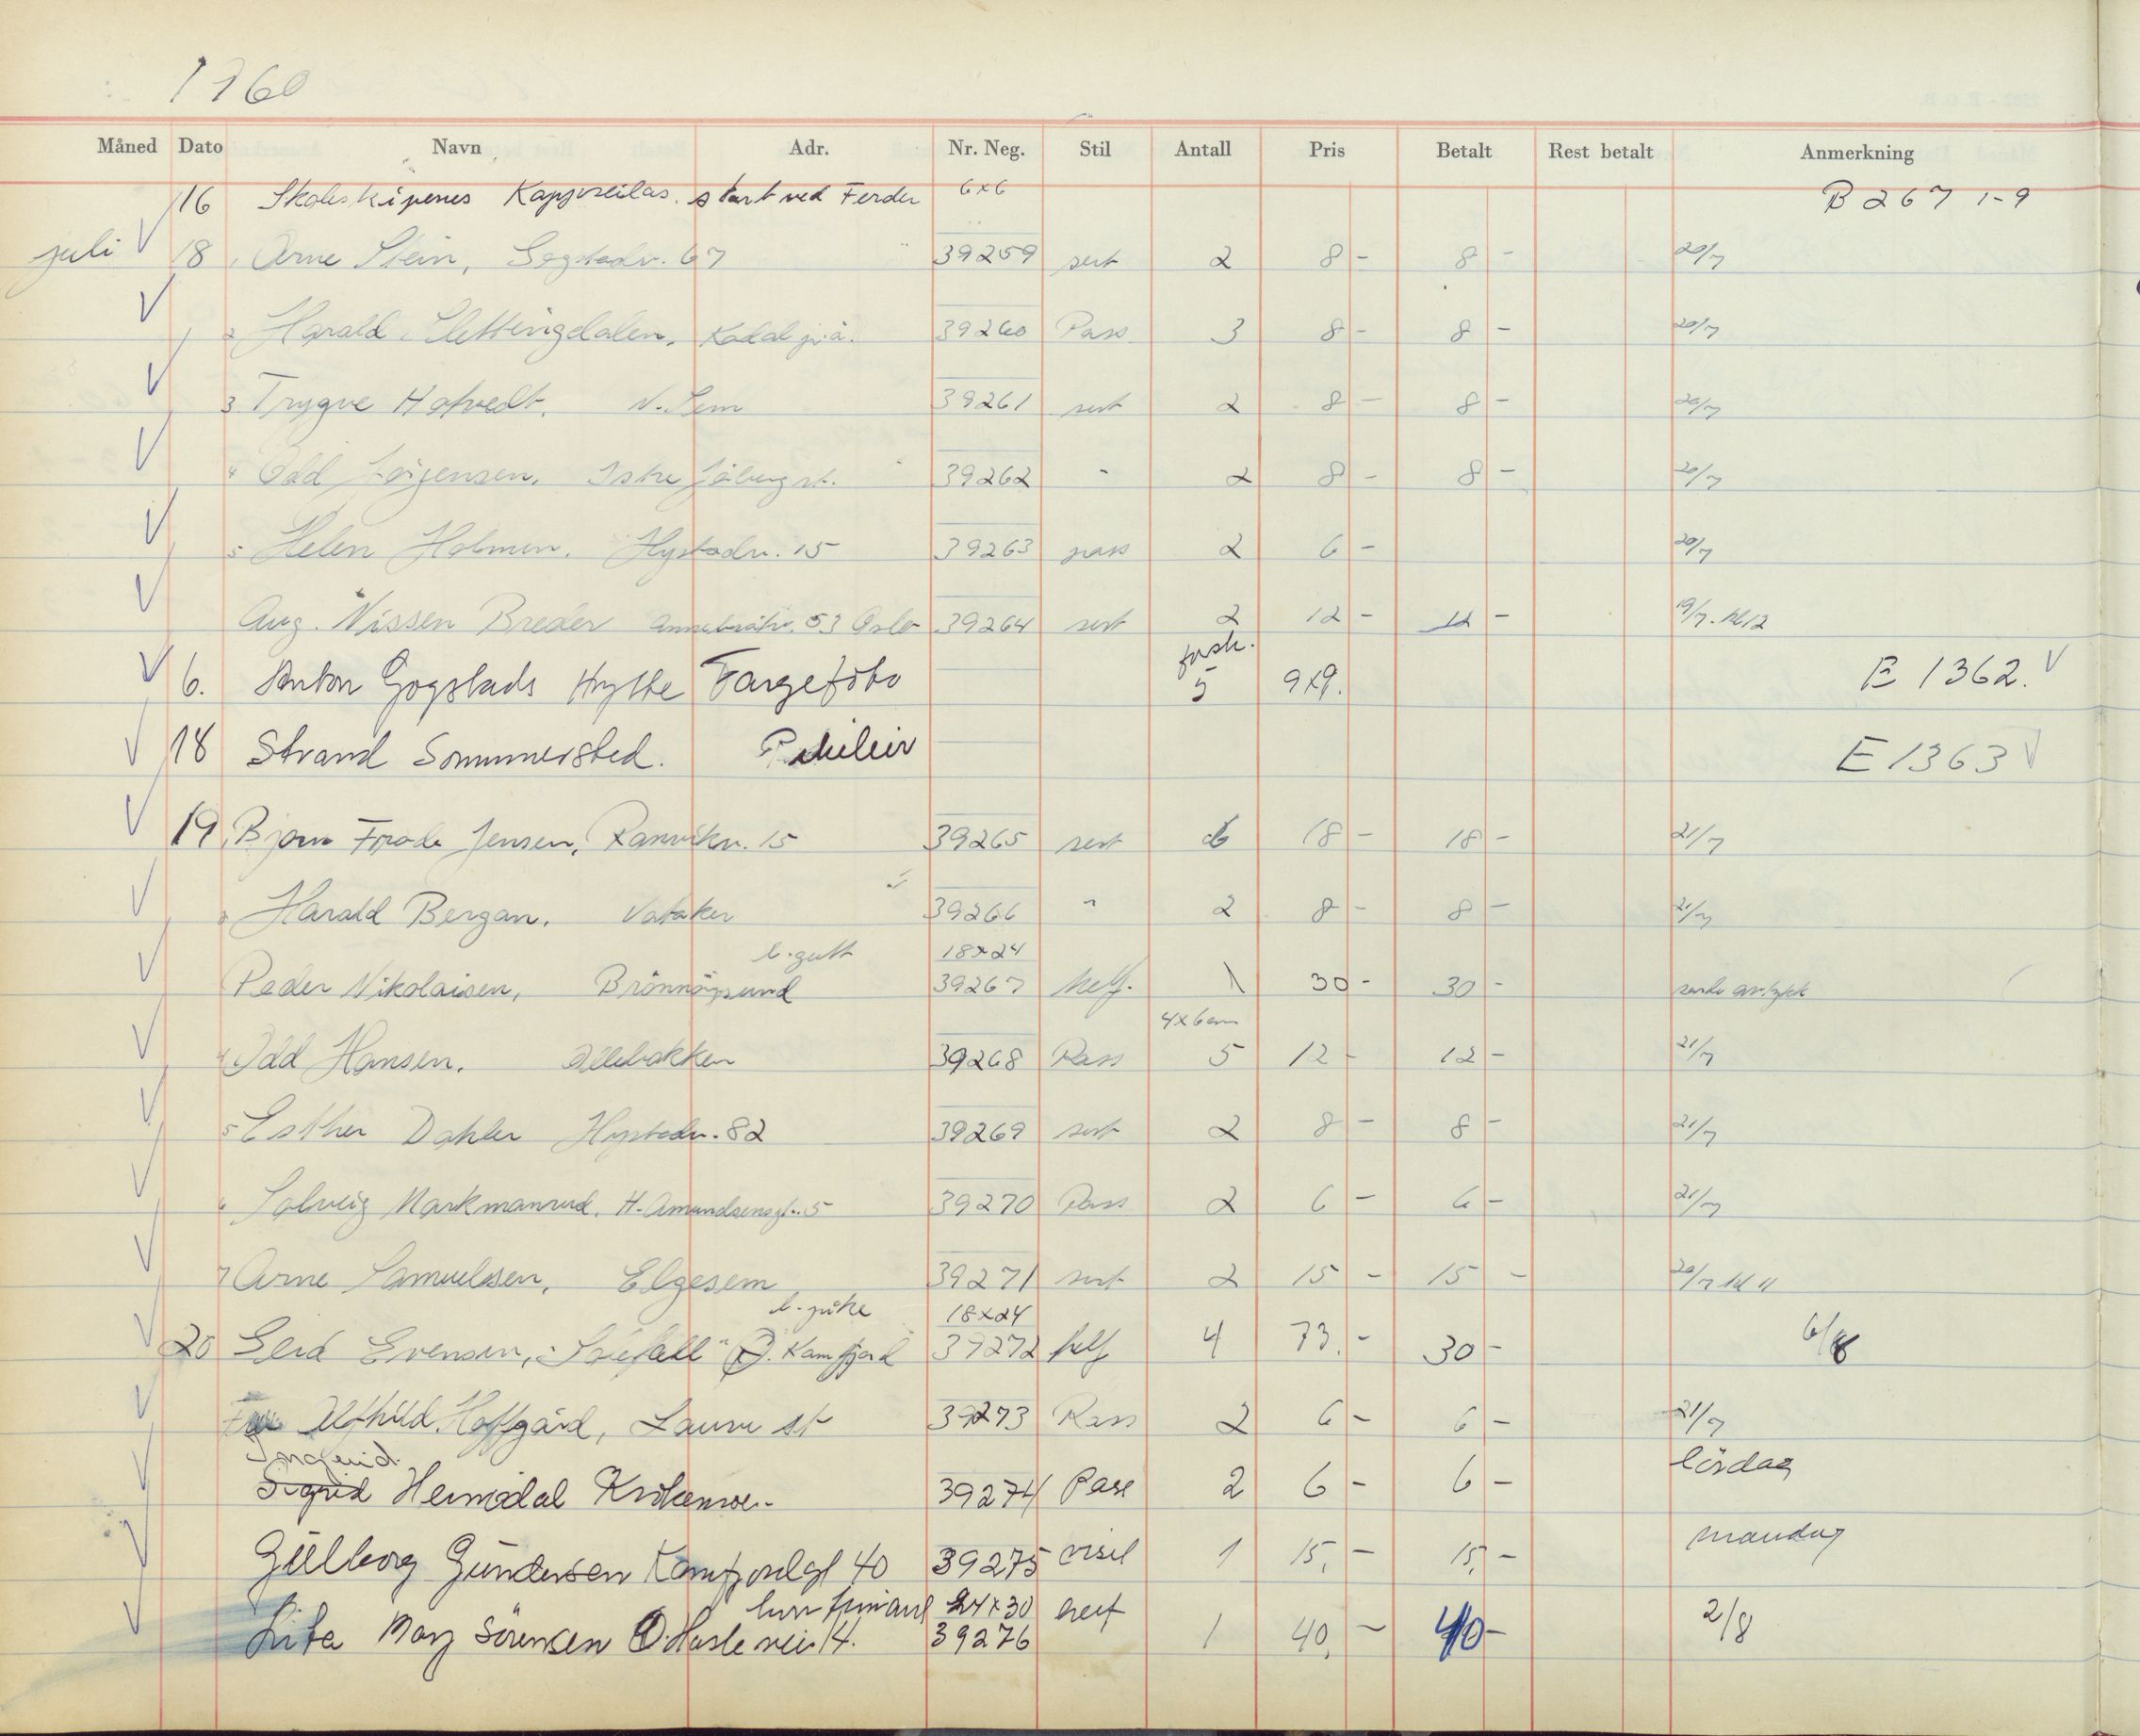 1960
Måned Dato Navn Adr. Nr. Neg. Stil Antall Pris Betalt Rest betalt Anmerkning
16 Skoleskipenes Kappseilas. start ved Ferder 6x6 B 267 1-9
juli 18 1 Arne Stein, 67 39259 sert 2 8 - 8 - 20/7
2 Harald Slettingdalen, Kodal 39260 Pass 3 8 - 8 - 20/7
3 Trygve Hotvedt, N. Sem 39261 sert 2 8 - 8 - 20/7
4 Odd Jørgensen, Istre 39262 - 2 8 - 8 - 20/7
5 Helen Holmen, Hystadv. 15 39263 pass 2 6 - 20/7
Aug. Nissen Breder 53 Oslo 39264 sert 2 12 - 12 - 19/7. kl 12
6. Anton Gogstads Hytte Fargefoto 5 9x9. E 1362.
18 Strand Sommersted. E 1363
19 1 Bjørn Frode Jensen, Ranvikv. 15 39265 sert 6 18 - 18 - 21/7
2 Harald Bergan, Vataker 39266 " 2 8 - 8 - 21/7
b. gutt 18x24
Peder Nikolaisen, Brönnöysund 39267 helf. 1 30 - 30 -
4x6 cm
4 Odd Hansen, 39268 Pass 5 12 - 12 - 21/7
5 Esther Dahler Hystadv. 82 39269 sert 2 8 - 8 - 21/7
6 Solveig Markmanrud, H. Amundsensgt. 5 39270 Pass 2 6 - 6 - 21/7
7 Arne Samuelsen, Elgesem 39271 sert 2 15 - 15 - 20/7 kl 11
b. pike 18x24
20 Gerd Evensen, "Solefall" Ø. Kamfjord 39272 helf 4 73. - 30 - 6/8
Alfhild Hoffgård, Lauve st 39273 Pass 2 6 - 6 - 21/7
Ingrid
Sigrid Heimdal 39274 Pass 2 6 - 6 - lördag
Gülborg Gundersen Kamfjordgt 40 39275 visit 1 15, - 15, - mandag
24x30 helf
Lita May Sörensen Ö. Hasle vei 14. 39276 1 40, - 40 - 2/8